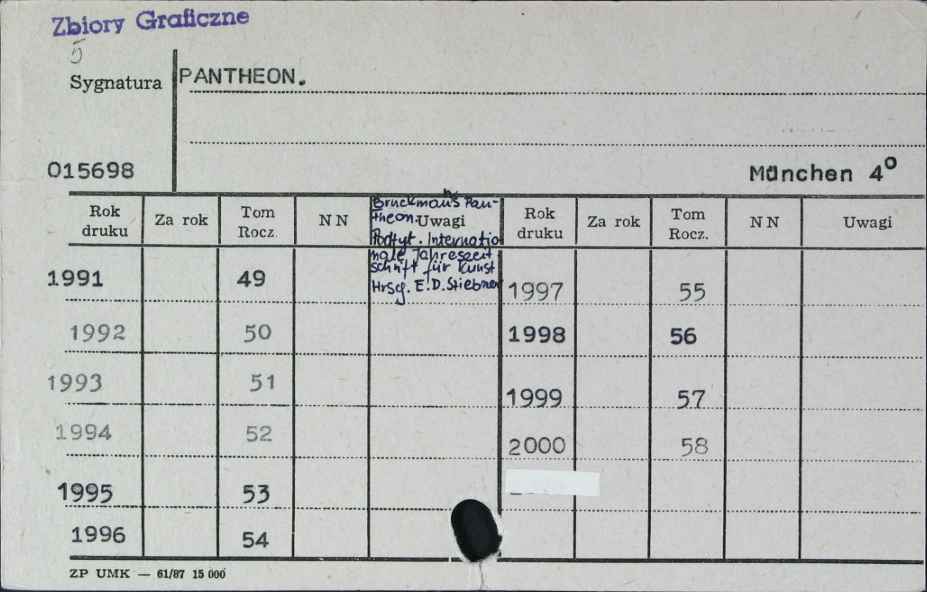 Zbiory Graficzne
5
Sygnatura PANTHEON.
015698 München 4°
Rok druku Za rok Tom Rocz. N N Uwagi Rok druku Za rok Tom Rocz. N N Uwagi
Bruckmanns Pan-
theon.
Podtyt. Internatio
nale Jahreszeit
schrift für Kunst
Hrsg. E.D.Stiebner
1991 49 1997 55
1992 50 1998 56
1993 51 1999 57
1994 52 2000 58
1995 53
1996 54
ZP UMK — 61/87 15 000